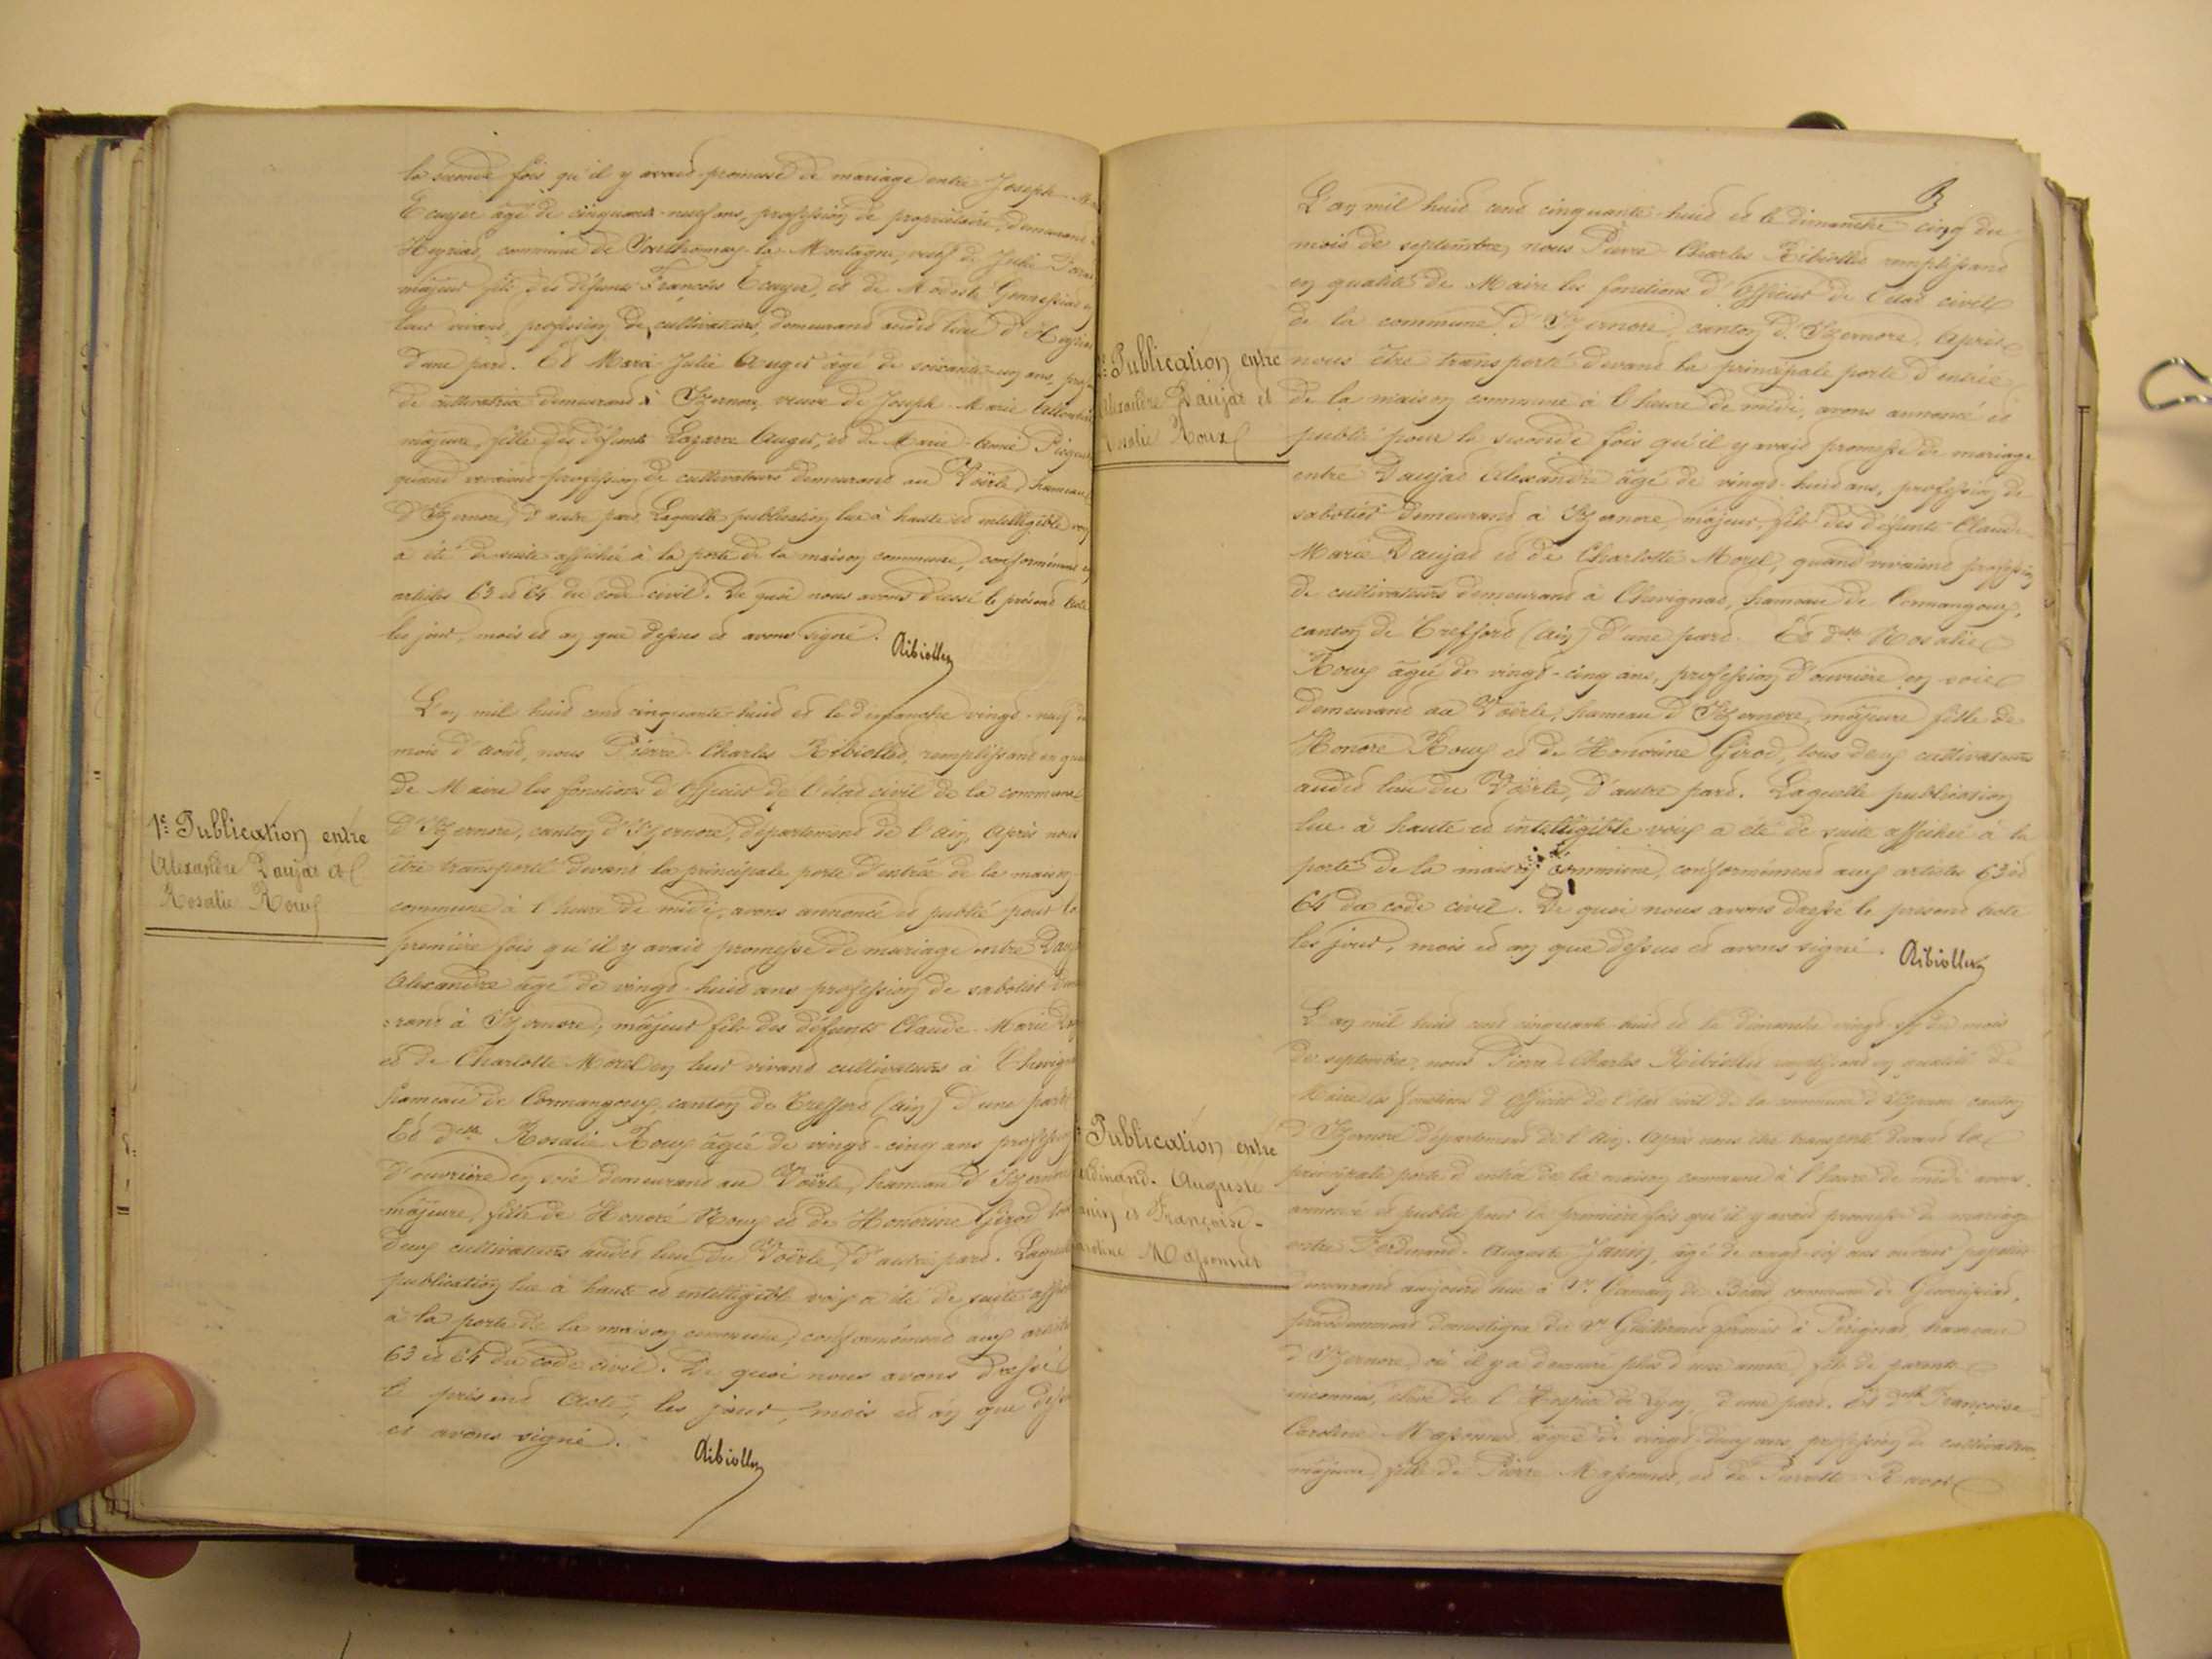 la seconde fois qu'il y avait promesse de mariage entre Joseph
Ecuyer âgé de cinquante-neuf ans, profession de propriétaire, demeurant
Heyriat, commune de Sonthonnax-la-Montagne, veuf de Julie
majeur fils des défunts François Ecuyer, et de Modeste
leur vivant, profession de cultivateurs, demeurant audit lieu d'Heyriat
d'une part. Et Marie Julie Auger âgé de soixante-un ans,
de cultivatrice demeurant à Izernore, veuve de Joseph-Marie
majeure, fille des défunts Lazarre Auger, et de Marie-Aimé
quand vivaient profession de cultivateurs demeurant au Voërle, hameau
d'Izernore, d'autre part, Laquelle publication lue à haute et intelligible
a été de suite affichée à la porte de la maison commune, conformément
articles 63 et 64 du code civil. De quoi nous avons dressé le présent acte
les jour, mois et an que dessus et avons signé.
Ribiollet
L'an mil huit cent cinquante-huit et le dimanche vingt-neuf du
mois d'août, nous Pierre-Charles Ribiollet, remplissant en
de Maire les fonctions d'officier de l'état civil de la commune
d'Izernore, canton d'Izernore, département de l'Ain, Après nous
être transporté devant la principale porte d'entrée de la maison
commune à l'heure de midi, avons annoncé et publié pour la
première fois qu'il y avait promesse de mariage entre
1e Publication entre
Alexandre Daujat et
Rosalie Roux
Alexandre âgé de vingt-huit ans profession de sabotier
-rant à Izernore, majeur fils des défunts Claude-Marie
et de Charlotte Morel en leur vivant cultivateurs à
hameau de Cormangoux, canton de Treffort (Ain) d'une part
Et dlle Rosalie Roux âgée de vingt-cinq ans profession
d'ouvrière en soie demeurant au Voërle, hameau d'Izernore
majeure, fille de Honoré Roux et de Honorine Girod tous
deux cultivateurs audit lieu du Voërle, d'autre part.
publication lue à haute et intelligible voix a été de suite
à la porte de la maison commune, conformément aux
63 et 64 du code civil. De quoi nous avons dressé
le présent acte, les jour, mois et an que
et avons signé.
Ribiollet
L'an mil huit cent cinquante-huit et le dimanche cinq du
mois de septembre, nous Pierre-Charles Ribiollet remplissant
en qualité de Maire les fonctions d'officier de l'état civil
de la commune d'Izernore, canton d'Izernore. Après
Publication entre
Alexandre Daujat et
Rosalie Roux
nous être transporté devant la principale porte d'entrée
de la maison commune à l'heure de midi, avons annoncé et
publié pour la seconde fois qu'il y avait promesse de mariage
entre Daujat Alexandre âgé de vingt-huit ans, profession de
sabotier demeurant à Izernore, majeur, fils des défunts Claude-
Marie Daujat et de Charlotte Morel, quand vivaient profession
de cultivateurs demeurant à Chevignat, hameau de Cormangoux,
canton de Treffort (Ain) d'une part. Et dlle Rosalie
Roux âgée de vingt-cinq ans, profession d'ouvrière en soie
demeurant au Voërle, hameau d'Izernore, majeure fille de
Honoré Roux et de Honorine Girod, tous deux cultivateurs
audit lieu du Voërle, d'autre part. Laquelle publication
lue à haute et intelligible voix a été de suite affichée à la
porte de la maison commune, conformément aux articles 63 et
64 du code civil. De quoi nous avons dressé le présent acte
les jour, mois et an que dessus et avons signé.
Ribiollet
L'an mil huit cent cinquante-huit et le dimanche vingt-six du mois
de septembre, nous Pierre-Charles Ribiollet remplissant en qualité de
Maire les fonctions d'officier de l'état civil de la commune d'Izernore canton
d'Izernore département de l'Ain. Après nous être transporté devant la
Publication entre
Auguste
et Françoise-
Massonnet
principale porte d'entrée de la maison commune à l'heure de midi avons
annoncé et publié pour la première fois qu'il y avait promesse de mariage
entre Ferdinand-Auguste Janin, âgé de vingt-six ans
demeurant aujourd'hui à St Germain de Béard, commune de Géovreissiat,
précédemment domestique du Sr Guillermet fermier à Pérignat, hameau
d'Izernore, où il y a demeuré plus d'une année, fils de parents
inconnus, élève de l'Hospice de Lyon d'une part. Et dlle Françoise
Caroline Massonnet âgée de vingt-deux ans, profession de cultivatrice,
majeure, fille de Pierre Massonnet, et de Pierrette Ravot